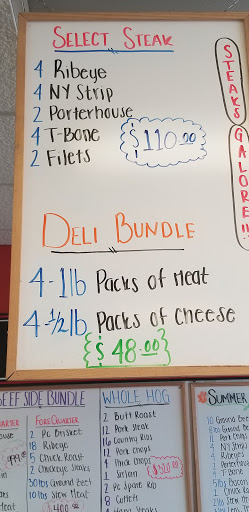 SELECT STEAK
4 Ribeye
4 NY Strip
2 Porterhouse
4 T-Bone
2 Filets
$110.00
STEAKS GALORE!!
DELI BUNDLE
4-1lb Packs of Meat
4-1/2lb Packs of Cheese
$48.00
BEEF SIDE BUNDLE
FOREQUARTER
2 Pc Brisket
18 Ribeye
5 Chuck Roast
2 Chuckeye Steaks
50 lbs Ground Beef
10 lbs Stew Meat
WHOLE HOG
2 Butt Roast
12 Pork Steak
16 Country Ribs
12 Pork Chops
4 Thick Chops
1 Sirloin
2 Pc Spare Rib
8 Cutlets
Ham Steaks
SUMMER
10 Ground Beef
4 Ribeyes
4 Porterhouse
4 T-Bone
5 lbs Bacon